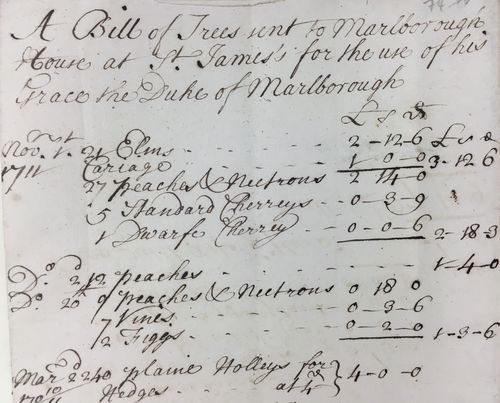 A Bill of Trees sent to Marlborough
House at St. James's for the use of his
Grace the Duke of Marlborough
£ s d
Novr. 1st. 21 Elms - - - 2 - 12 - 6 £ s d
1711 Cariage - - - 1 - 0 - 0 3 - 12 6
27 peaches & Nectrons - - 2 14 - 0
5 Standard Cherreys - - 0 - 3 - 9
1 Dwarfe Cherrey - - 0 - 0 - 6 2 - 18 - 3
Do. 2d 12 peaches - - - 1 - 4 - 0
Do. 20 9 peaches & Nectrons 0 18 0
7 Vines - - - 0 - 3 - 6
2 Figgs - - - 0 - 2 - 0 1 - 3 - 6
Mar. 2d 240 plaine Holleys for
Hedges - - at 4d } 4 - 0 - 0